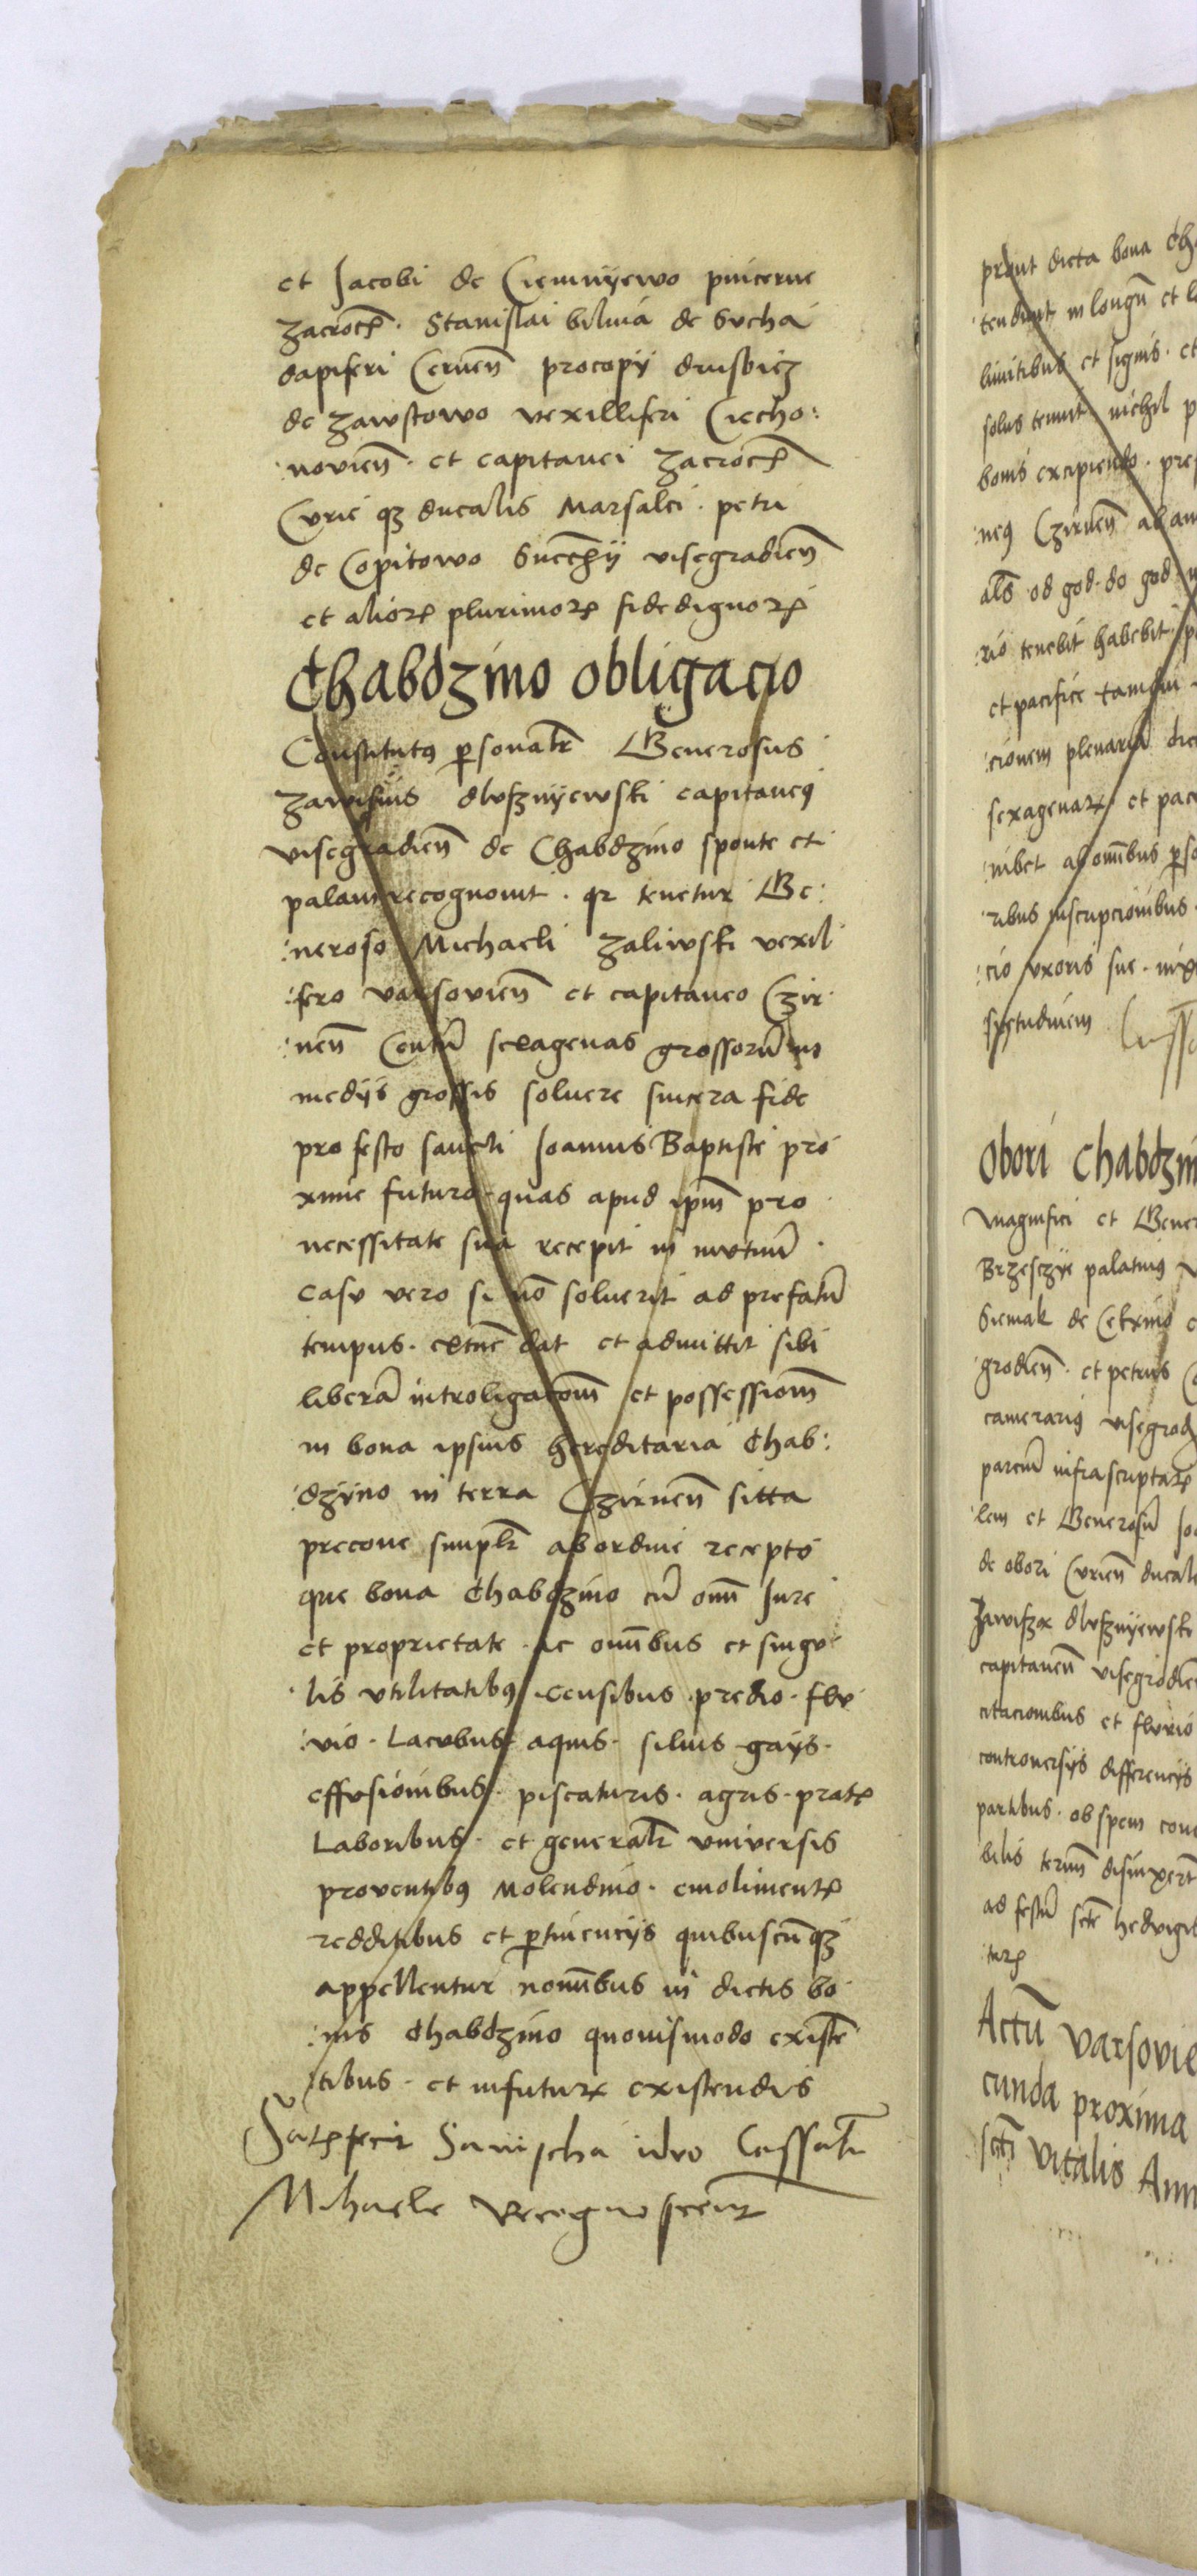 et Jacobi de Ciemnÿewo pincerne
zacrocz͡ · Stanislai bilina de Sucha
dapiferi Cernen̄ procopÿ drusbicz
de zawstowo vexilliferi Ciecho:
:novien̄ · et capitanei zacrocz͡
Curie qz ducalis Marsalci · petri
de Copitowo visegradien̄
et alioꝝ plurimoꝝ fidedignoꝝ
Chabdzino obligacio
Constitutꝯ ꝑsonalr̄ Generosus
zawisius dlusznÿewski capitaneꝯ
visegradien̄ de Chabdzino sponte et
palam recognouit · qr tenetur Ge:
:neroso Michaeli zaliwski vexil
:fero varsovien̄ et capitaneo Czir
:nen̄ Centū sexagenas grossorū in
medÿs grossis soluere sincera fide
pro festo sancti Joannis Baptiste pro
xime futuro · quas apud ipm̄ pro
necessitate sua recepit in mvtuū ·
Casu vero si nō soluerit ad prefatū
tempus · extūc dat et admittit sibi
liberā introligacōm et possessiom̄
in bona ipsius hereditaria Chab:
:dzÿno in terra Czirnen̄ sitta
precone simplr̄ ab ordine recepto
que bona Chabdzino cū om̄i Jure
et proprietate · ac om̄ibus et singu
lis vtilitatibꝯ · censibus · predio · flu
:vio · Lacubus · aquis · siluis · gaÿs ·
effusionibus · piscaturis · agris · pratꝭ
Laboribus · et generalr̄ vniversis
proventibꝯ Molendino · emolimentꝭ
redditibus et ꝑtinencÿs quibuscūqꝫ
appellentur nomībus in dictis bo
:nis Chabdzino quouismodo existē
:tibus · et infuturꝫ existendis
Satꝭfecit ideo Cassatur
Mihaele Recognoscente
prout dicta bona Cha
tendunt in longū et l
limitibus et signis · et
solus tenuit nichil p
bonis excipiendo · pre
neꝯ Czirnen̄ ab an
als̄ od god · do god ·
:rio tenebit habebit · p
et pacifice tamdiu
:cionem plenariā dic
sexagenaꝝ · et pac
:nibet ab om̄ibus ꝑso
:ribus inscripcionibus
:cio vxoris sue ·
Obori Chabdzin
Magnifici et Gener
Brzesczÿe palatinꝯ v
Siemak de c
grodien̄ · et petrus C
camerariꝯ visegrod
parciū infrascriptaꝝ
lem et Generosū Jo
de obori Curien̄ ducal
zawisza dluszniÿewski
capitaneū visegrodien
citacionibus et fluvio
controuersÿs differencÿs
partibus · ob spem con
ad festū scte hedvigis
Actū varsovie
cunda proxima
sct̄i vitalis Ann